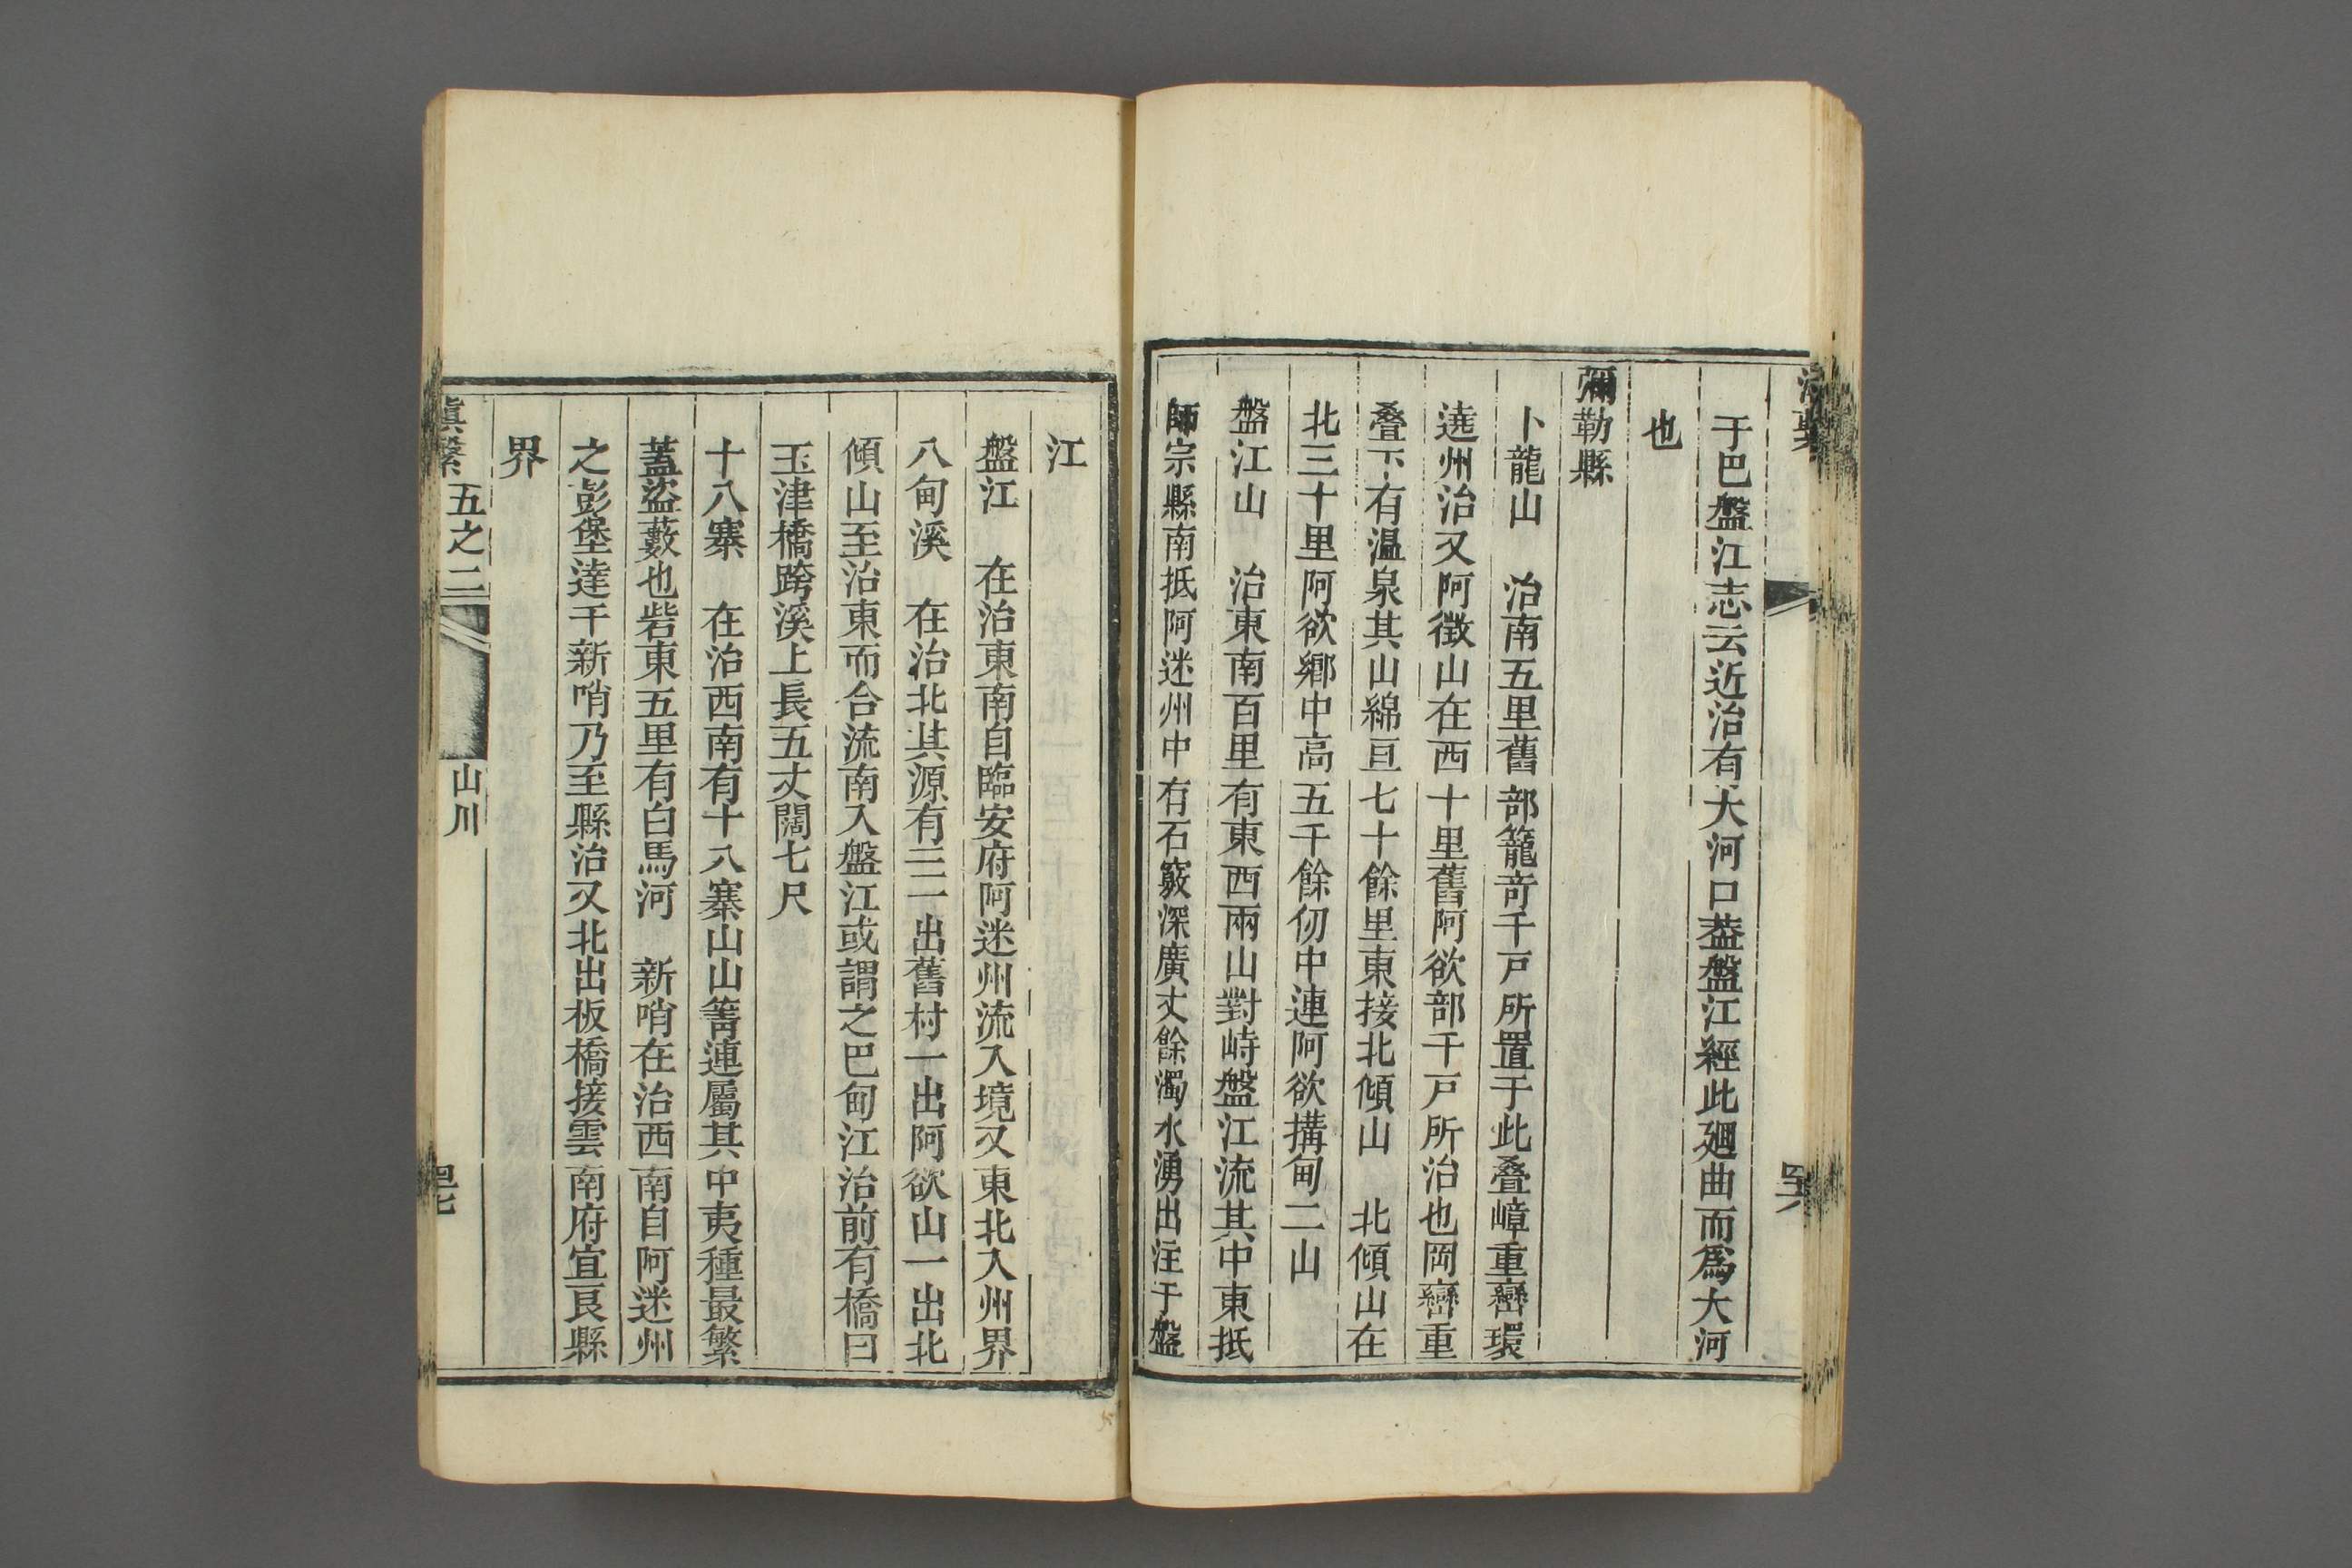 于巴盤江志云近治有大河口葢盤江經此廻曲而爲大河
也
彌勒縣
卜龍山　治南五里舊部籠竒千戸所置于此叠嶂重巒環
遶州治又阿徴山在西十里舊阿欲部千戸所治也岡巒重
叠下有温泉其山綿亘七十餘里東接北傾山　北傾山在
北三十里阿欲鄉中高五千餘仞中連阿欲搆甸二山
盤江山　治東南百里有東西兩山對峙盤江流其中東抵
師宗縣南抵阿迷州中有石竅深廣丈餘濁水湧出注于盤
江
盤江　在治東南自臨安府阿迷州流入境又東北入州界
八甸溪　在治北其源有三一出舊村一出阿欲山一出北
傾山至治東而合流南入盤江或謂之巴甸江治前有橋曰
玉津橋跨溪上長五丈闊七尺
十八寨　在治西南有十八寨山山箐連屬其中夷種最繁
蓋盜藪也砦東五里有白馬河　新哨在治西南自阿迷州
之彭堡達千新哨乃至縣治又北出板橋接雲南府宜良縣
界
滇繫 五之二 山川 四七